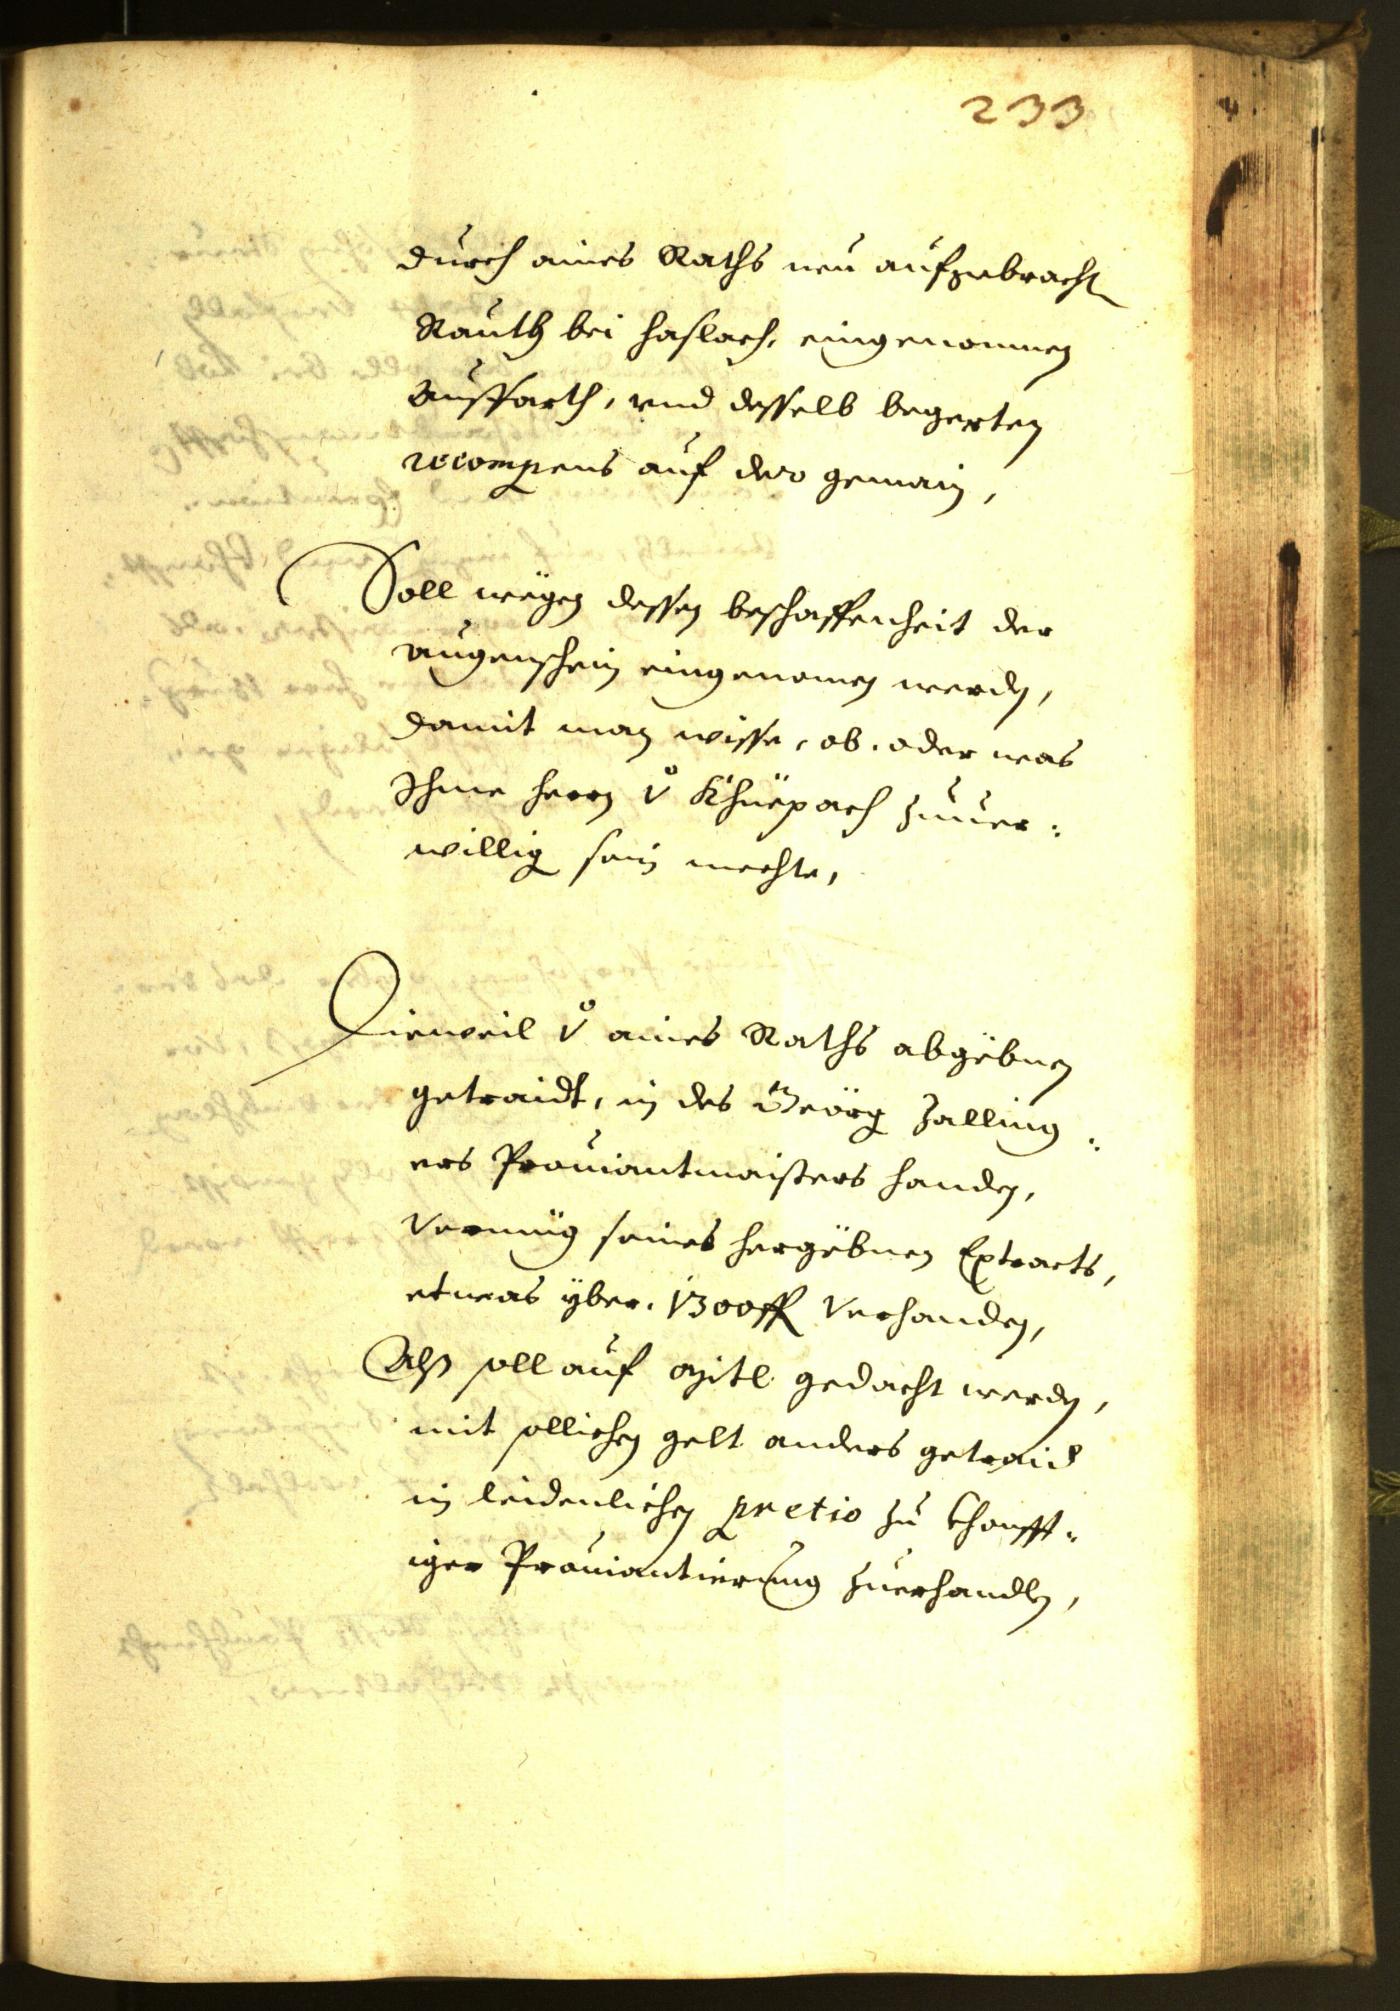 233
durch aines Raths neu aufgebracht
Rauth bei Haslach, eingenommen
Auffarth, vnd desselb begerten
recompens auf der gemain,
Soll wëgen dessen beschaffenheit der
augenschein eingenomen werden,
damit man wisse, ob, oder was
Ihme herrn v̊ Khüepach zuuer:
willig sein mechte,
Dieweil v̊ aines Raths abgëbnen
getraidt, in des Geörg Zalling:
ers Prouiantmaisters handen,
Vermüg seines hergëbnen Extracts,
etwas yber, 1300 ff Verhanden,
Alß soll auf Mitl gedacht werden,
mit sollichen gelt anders getraid
in leidenlichen pretio zu khonfft:
iger Prouiantierung zuerhandlen,